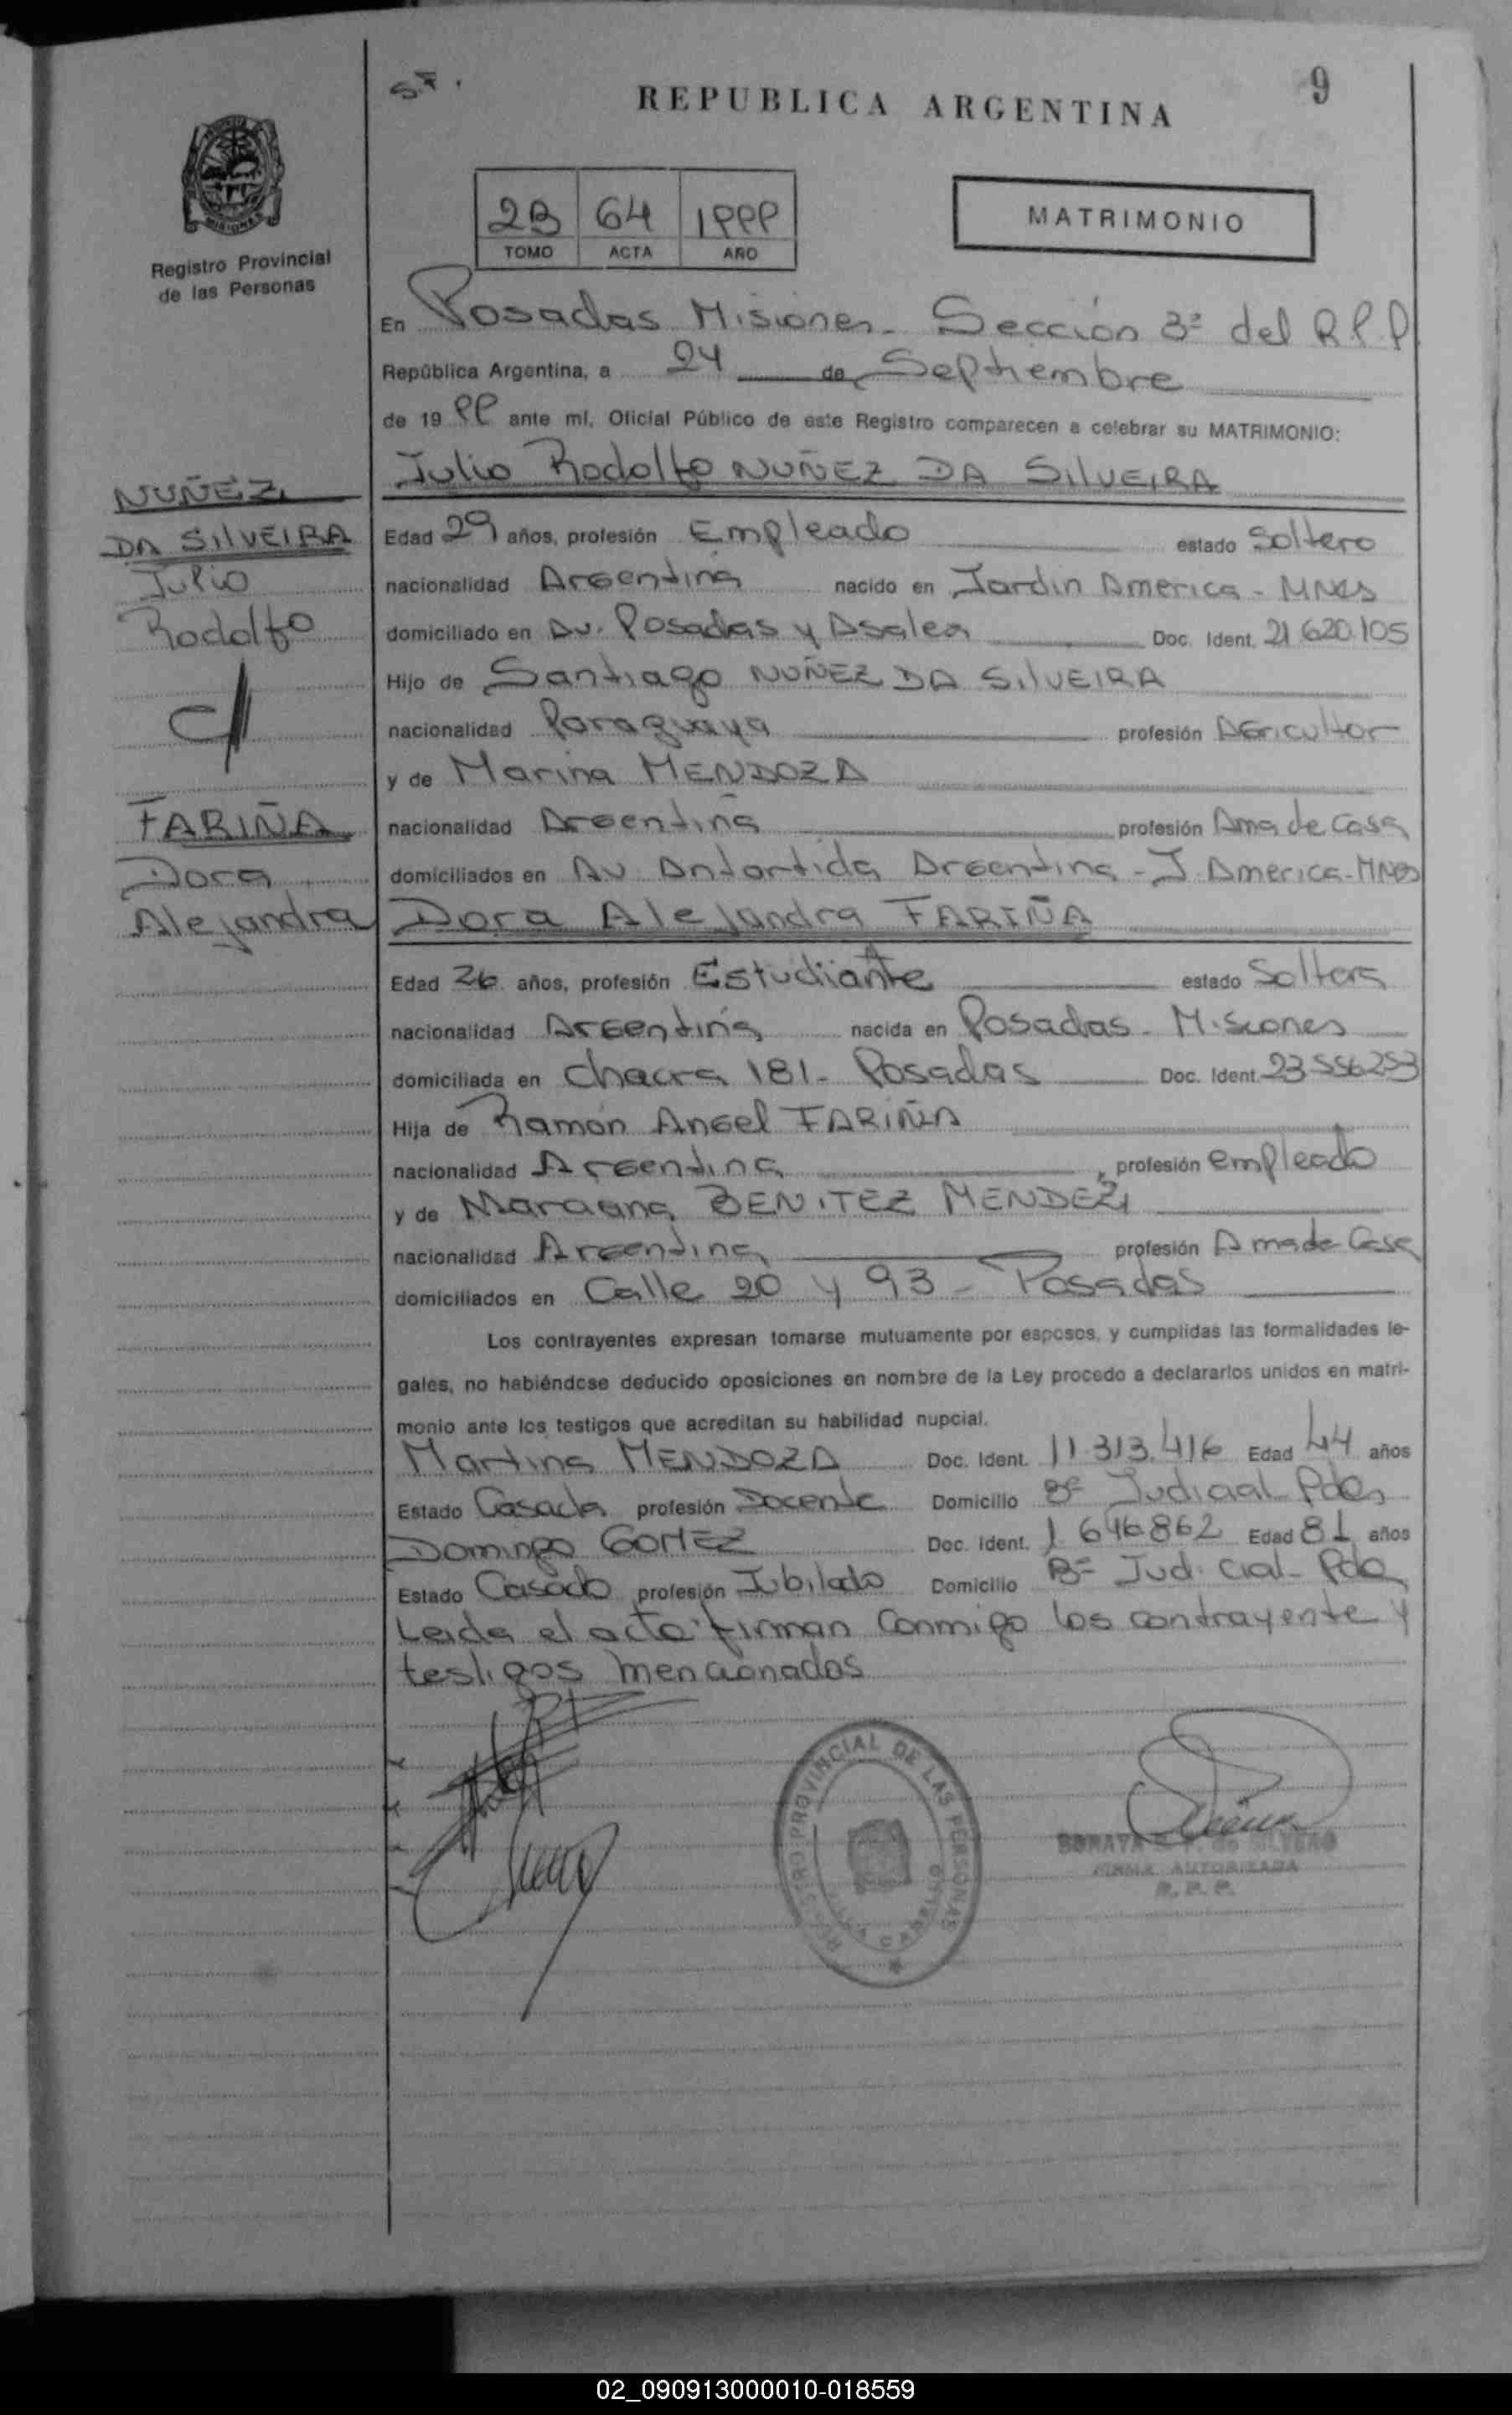 9
REPUBLICA ARGENTINA
MISIONES
Registro Provincial
de las Personas
2B 64 1999
TOMO ACTA AÑO
MATRIMONIO
En Posadas Misiones - Sección 3ª del R.P.P
República Argentina, a 24 de Septiembre
de 19 99 ante mí, Oficial Público de este Registro comparecen a celebrar su MATRIMONIO:
Julio Rodolfo NUÑEZ DA SILVEIRA
NUÑEZ
DA SILVEIRA
Julio
Rodolfo
C/
FARIÑA
Dora
Alejandra
Edad 29 años, profesión Empleado estado Soltero
nacionalidad Argentina nacido en Jardin America - MNES
domiciliado en Av. Posadas y Asalea Doc. Ident. 21.620.105
Hijo de Santiago NUÑEZ DA SILVEIRA
nacionalidad Paraguaya profesión Agricultor
y de Marina MENDOZA
nacionalidad Argentina profesión Ama de Casa
domiciliados en Av. Antartida Argentina - J. America - MNES
Dora Alejandra FARIÑA
Edad 26 años, profesión Estudiante estado Soltera
nacionalidad Argentina nacida en Posadas - Misiones
domiciliada en Chacra 181 - Posadas Doc. Ident. 23.556.253
Hija de Ramón Angel FARIÑA
nacionalidad Argentina profesión empleado
y de BENITEZ MENDEZ
nacionalidad Argentina profesión Ama de Casa
domiciliados en Calle 20 y 93 - Posadas
Los contrayentes expresan tomarse mutuamente por esposos, y cumplidas las formalidades le-
gales, no habiéndose deducido oposiciones en nombre de la Ley procedo a declararlos unidos en matri-
monio ante los testigos que acreditan su habilidad nupcial.
Martina MENDOZA Doc. Ident. 11.313.416 Edad 44 años
Estado Casada profesión Docente Domicilio Bº Judicial Pdas
Domingo CORTEZ Doc. Ident. 1.646.862 Edad 81 años
Estado Casado profesión Jubilado Domicilio Bº Judicial - Pda
Leida el acta firman conmigo los contrayente y
testigos mencionados
REGISTRO PROVINCIAL DE LAS PERSONAS
SORAYA DE SILVERO
FIRMA AUTORIZADA
R. P. P.
02_090913000010-018559